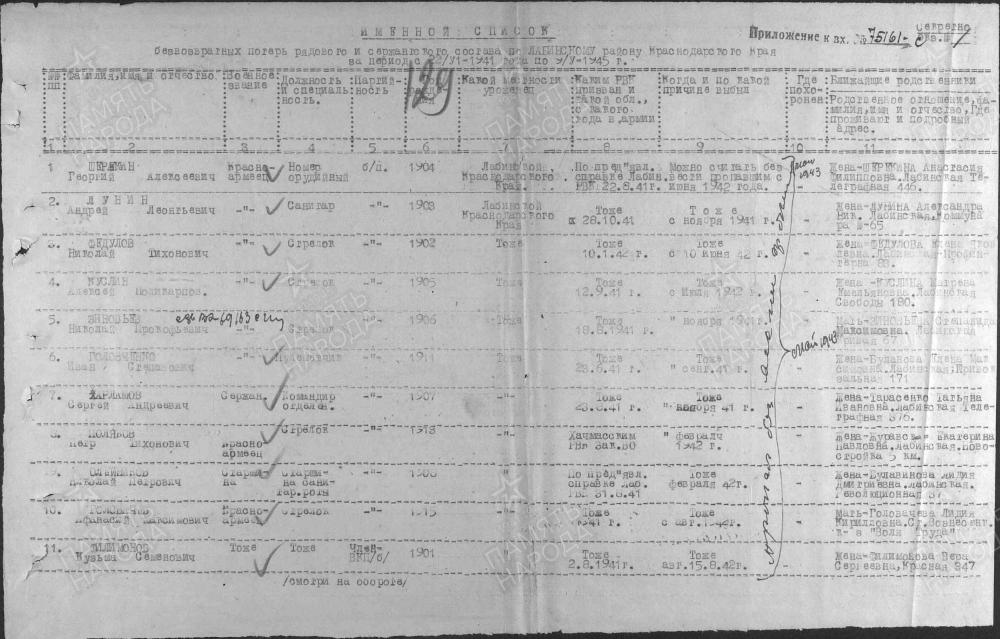 ИМЕННОЙ СПИСОК
Секретно
Приложение к вх. № 75161-с
безвозвратных потерь рядового и сержантского состава по ЛАБИНСКОМУ району Краснодарского Края
за период с 22/У1-1941 года по 9/У-1945 г.
139
№№ пп
Фамилия, имя и отчество
Военное звание
Должность и специальность.
Партийность
Какой местности уроженец
Каким РВК призван и какой обл., с какого года в армии
Когда и по какой причине выбыл
Где похоронен
Ближайшие родственники
Родственное отношение, фамилия, имя и отчество, Где проживают и подробный адрес.
1 2 3 4 5 6 8 9 10 11
1 ШЕРЯКИН Георгий Алексеевич Красноармеец Номер орудийный б/п. 1904 Лабинской Краснодарского Край По пред"явл. справке Лабин. РВК 22.8.41г. Можно считать без вести пропавшим с июня 1942 года. Жена-ШЕРЯКИНА Анастасия Филипповна. Лабинская Телеграфная 446.
2. ЛУНИН Андрей Леонтьевич -"- Санитар -"- 1903 Лабинской Краснодарского Край Тоже 28.10.41 Тоже с ноября 1941 г. Жена-ЛУНИНА Александра Ник. Лабинская, Коммунара №-65
3. ФЕДУЛОВ Николай Тихонович -"- Стрелок -"- 1902 Тоже Тоже 10.1.42 г. Тоже с 10 июня 42 г. Жена-ФЕДУЛОВА 88.
4. КУСЛИН Алексей Поликарпов. -"- Стрелок -"- 1905 Тоже Тоже 12.9.41 г. Тоже с Июля 1942 г. Жена-КУСЛИНА Матрена Емельяновна. Лабинская Свободы 180.
5. Николай Прокофьевич -"- Стрелок -"- 1906 Тоже Тоже 18.8.1941 г. " ноября 1941 г. Мать- Степанида Максимовна. Лабинская Кривая 67
6. Иван Степанович -"- -"- 1911 -"- Тоже 23.6.41 г. Тоже " сент.41 г. Жена-Буланова Елена 171
7. ХАРЛАМОВ Сергей Андреевич Сержан. Командир отделен. -"- 1907 -"- Тоже 23.6.41 г. Тоже " ноября 41 г. Жена-Тарасенко Татьяна Ивановна. Лабинская Телеграфная 376.
8. ПОЛЯКОВ Петр Тихонович Красноармеец Стрелок -"- -"- Хачмасским РВК Зак.ВО " февраля 1942 г. Жена- Екатерина Павловна. Лабинская. Новостройка 5 км.
9. Николай Петрович Старшина Старшина санитар.роты -"- " По пред"явл. справке Лаб. РВК 31.8.41 Тоже февраля 42г. Жена-Булавинова Лидия Дмитриевна. Лабинская. Революционная 87
10. Афанасий Максимович Красноармеец Стрелок -"- 1915 " Тоже 1941 г. Тоже с авг. Мать-Головачева Лидия Кирилловна. Ст. к-з "Воля Труда"
11. ФИЛИМОНОВ Кузьма Семенович Тоже Тоже Член-ВКП/б/ 1901 " Тоже 2.8.1941г. Тоже авг.15.8.42г. Жена-Филимонова Вера Сергеевна, Красная 347
май 1943
май 1943
/смотри на обороте/
ПАМЯТЬ НАРОДА